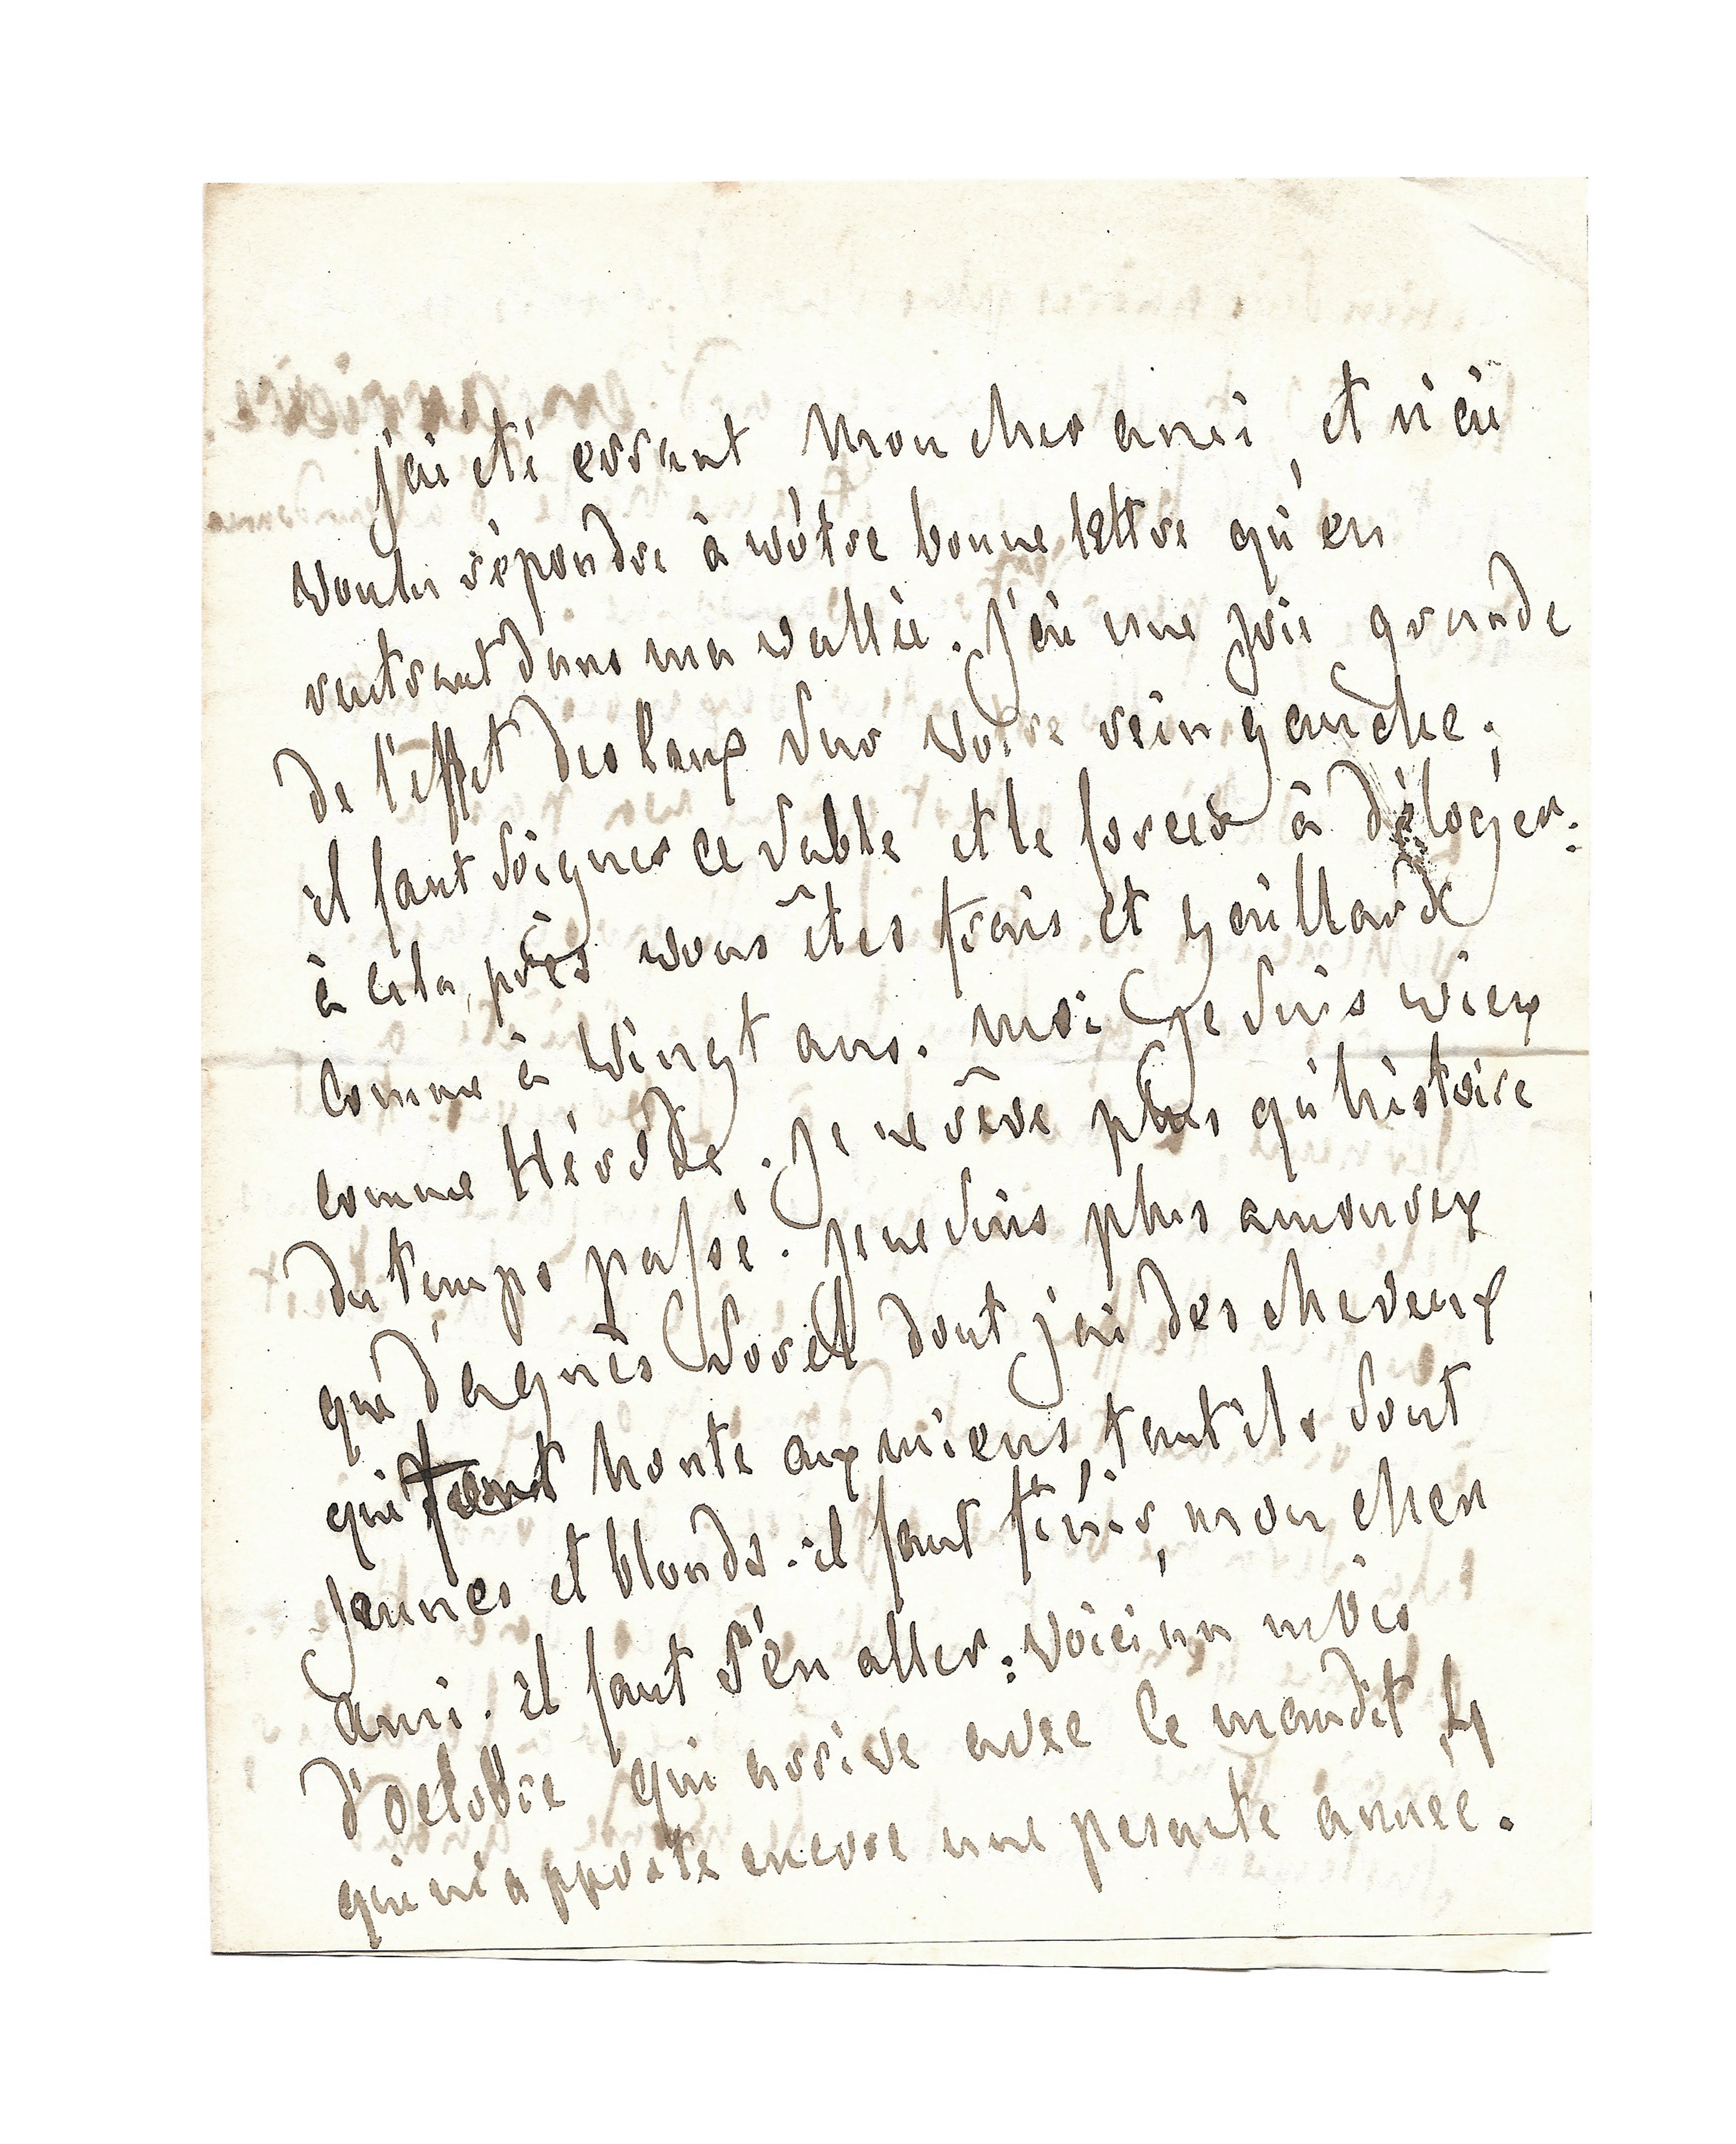 j'ai été errant mon cher ami, et n'ai
voulu répondre à vôtre bonne lettre qu'en
rentrant dans ma vallée. j'ai une joie grande
de l'effet des baux sur votre rein gauche;
il faut soigner ce sable et le forcer à déloger:
à cela près vous êtes frais et gaillard
comme à vingt ans. moi je suis vieux
comme Hérode. je ne rêve plus qu'histoire
du temps passé. je ne suis plus amoureux
que d'agnès Sorel dont j'ai des cheveux
qui font honte aux miens tant ils sont
jeunes et blonds. il faut finir, mon cher
ami. il faut s'en aller: voici un mois
d'octobre qui arrive avec le maudit 4
qui m'apporte encore une pesante année.